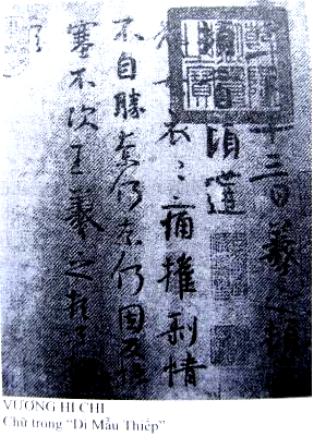 十三日羲之頓
頃遘
母哀〻痛摧剝情
不自勝奈何奈何因反慘
塞不次王羲之頓
VƯƠNG HI CHI
Chữ trong “Di Mẫu Thiếp”